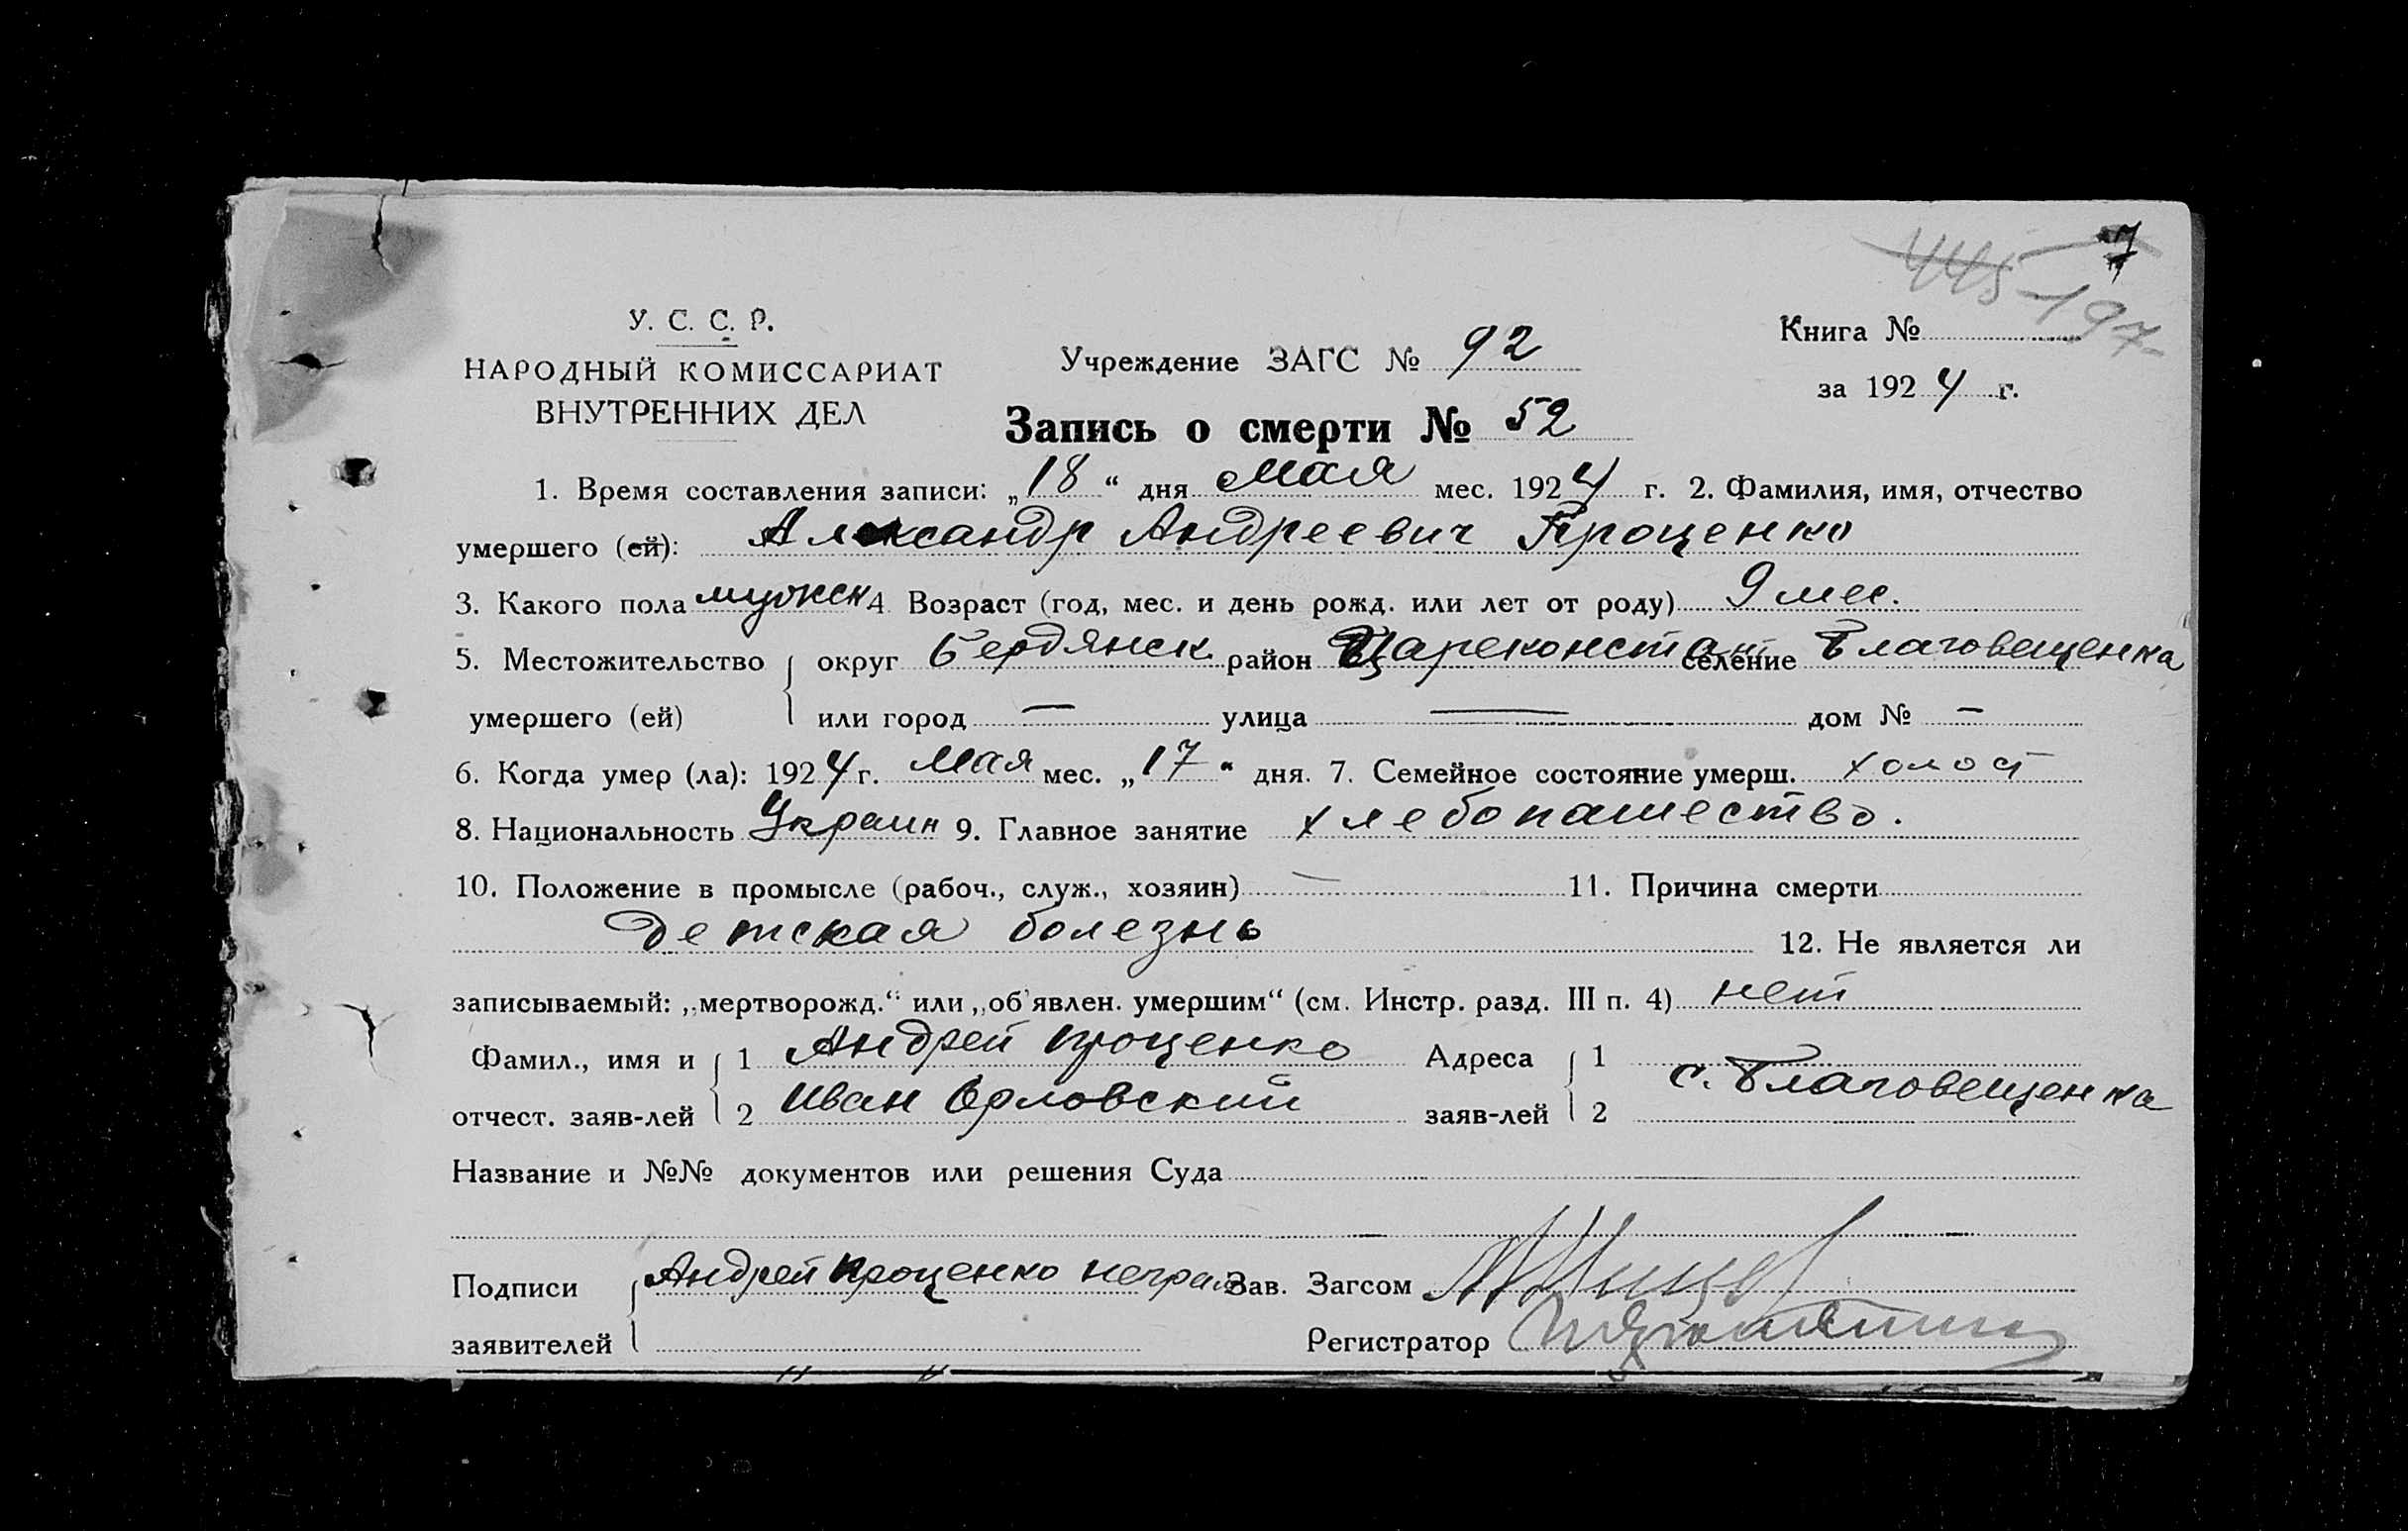 7
445
197
У. С. С. Р.
НАРОДНЫЙ КОМИССАРИАТ
ВНУТРЕННИХ ДЕЛ
Учреждение ЗАГС № 92
Книга №
за 1924 г.
Запись о смерти № 52
1. Время составления записи: „18“ дня Мая мес. 1924 г. 2. Фамилия, имя, отчество
умершего (ей): Александр Андреевич Проценко
3. Какого пола мужск 4. Возраст (год, мес. и день рожд. или лет от роду) 9 мес.
5. Местожительство округ Бердянск район Цареконстан селение Благовещенка
умершего (ей) или город — улица — дом № —
6. Когда умер (ла): 1924 г. Мая мес. „17“ дня. 7. Семейное состояние умерш. холост
8. Национальность Украин 9. Главное занятие хлебопашество.
10. Положение в промысле (рабоч., служ., хозяин) — 11. Причина смерти
детская болезнь 12. Не является ли
записываемый: „мертворожд.“ или „об'явлен. умершим“ (см. Инстр. разд. III п. 4) нет
Фамил., имя и 1 Андрей Проценко Адреса 1
отчест. заяв-лей 2 Иван Орловский заяв-лей 2 с. Благовещенка
Название и №№ документов или решения Суда
Подписи Андрей Проценко неграм Зав. Загсом
заявителей Регистратор